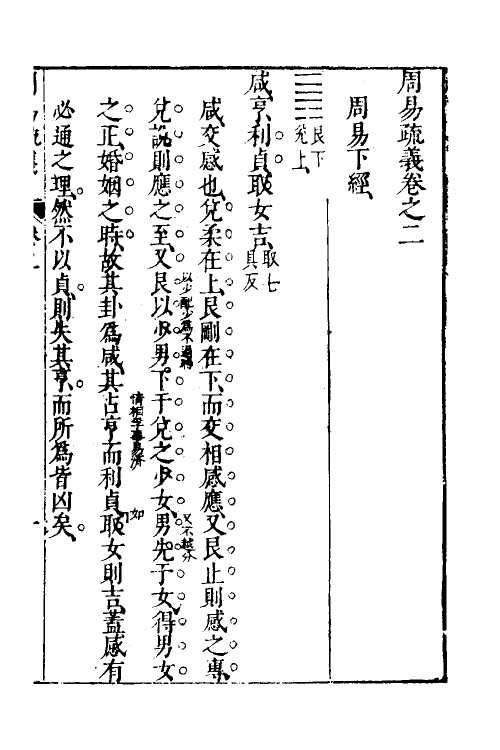 周易疏義卷之二
周易下經
艮下
兌上
咸亨利貞取女吉
取七
具反
咸交感也兌柔在上艮剛在下而交相感應又艮止則感之專
兌說則應之至又艮以少男下于兌之少女男先于女得男女
以少配少爲不過時
又不越分
之正婚姻之時故其卦爲咸其占亨而利貞取女則吉蓋感有
情相孚事易濟
如
必通之理然不以貞則失其亨而所爲皆凶矣